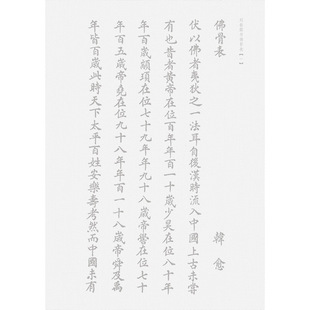 佛骨表
韓愈
伏以佛者夷狄之一法耳自後漢時流入中國上古未嘗
有也昔者黃帝在位百年年百一十歲少昊在位八十年
年百歲顓頊在位七十九年年九十八歲帝嚳在位七十
年百五歲帝堯在位九十八年年百一十八歲帝舜及禹
年皆百歲此時天下太平百姓安樂壽考然而中國未有